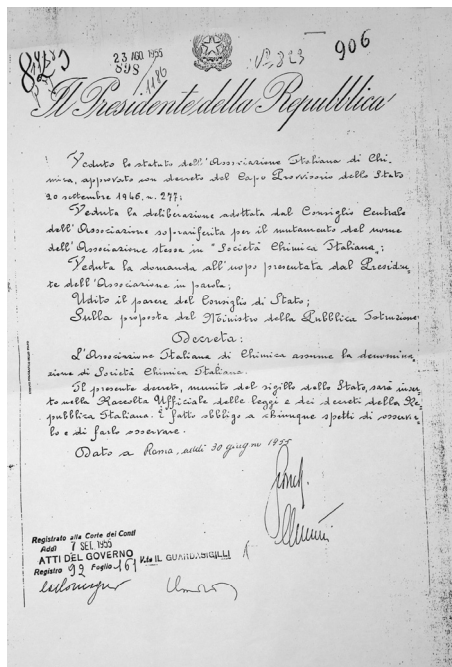 23 AGO. 1955
N° 823
906
898/1186
Il Presidente della Repubblica
Veduto lo statuto dell'Associazione Italiana di Chi-
mica, approvato con decreto del Capo Provvisorio dello Stato
20 settembre 1946, n. 277;
Veduta la deliberazione adottata dal Consiglio Centrale
dell'Associazione soprariferita per il mutamento del nome
dell'Associazione stessa in "Società Chimica Italiana";
Veduta la domanda all'uopo presentata dal Presiden-
te dell'Associazione in parola;
Udito il parere del Consiglio di Stato;
Sulla proposta del Ministro della Pubblica Istruzione
Decreta:
L'Associazione Italiana di Chimica assume la denomina-
zione di Società Chimica Italiana.
Il presente decreto, munito del sigillo dello Stato, sarà inser-
to nella Raccolta Ufficiale delle leggi e dei decreti della Re-
pubblica Italiana. È fatto obbligo a chiunque spetti di osservar-
lo e di farlo osservare.
Dato a Roma, addì 30 giugno 1955
Registrato alla Corte dei Conti
Addì 7 SET. 1955
ATTI DEL GOVERNO
Registro 92 Foglio 161
V.to IL GUARDASIGILLI